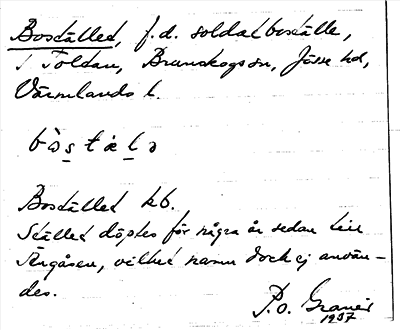 Bostället, f.d. soldatboställe,
i Töltan, Brunskogs sn, Jösse hd,
Värmlands l.
Bostället kb.
Stället döptes för några år sedan till
vilket namn dock ej använ-
des.
P.O. Granér
1937